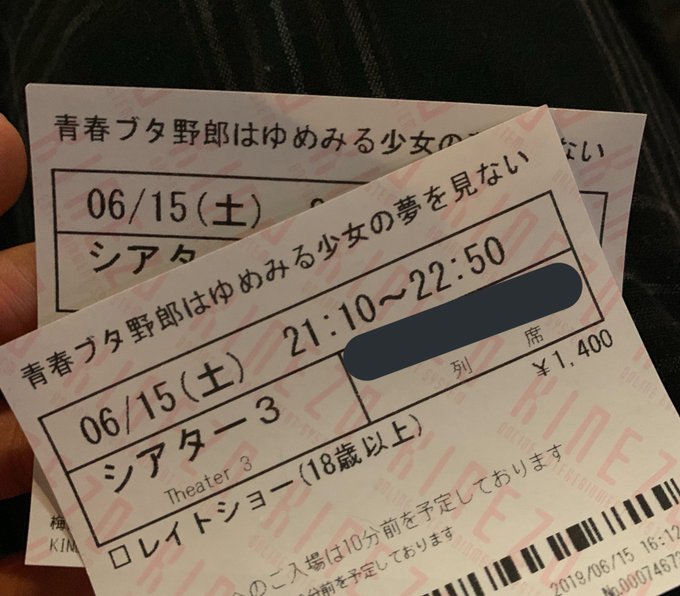 青春ブタ野郎はゆめみる少女の ない
06/15(土)
シアタ
青春ブタ野郎はゆめみる少女の夢を見ない
06/15(土) 21:10～22:50
シアター3
Theater 3
列 席
¥1,400
□レイトショー(18歳以上)
へのご入場は10分前を予定しております
分前を予定しております
2019/06/15 16:12
No.0007467
梅
KIN
KINEZO